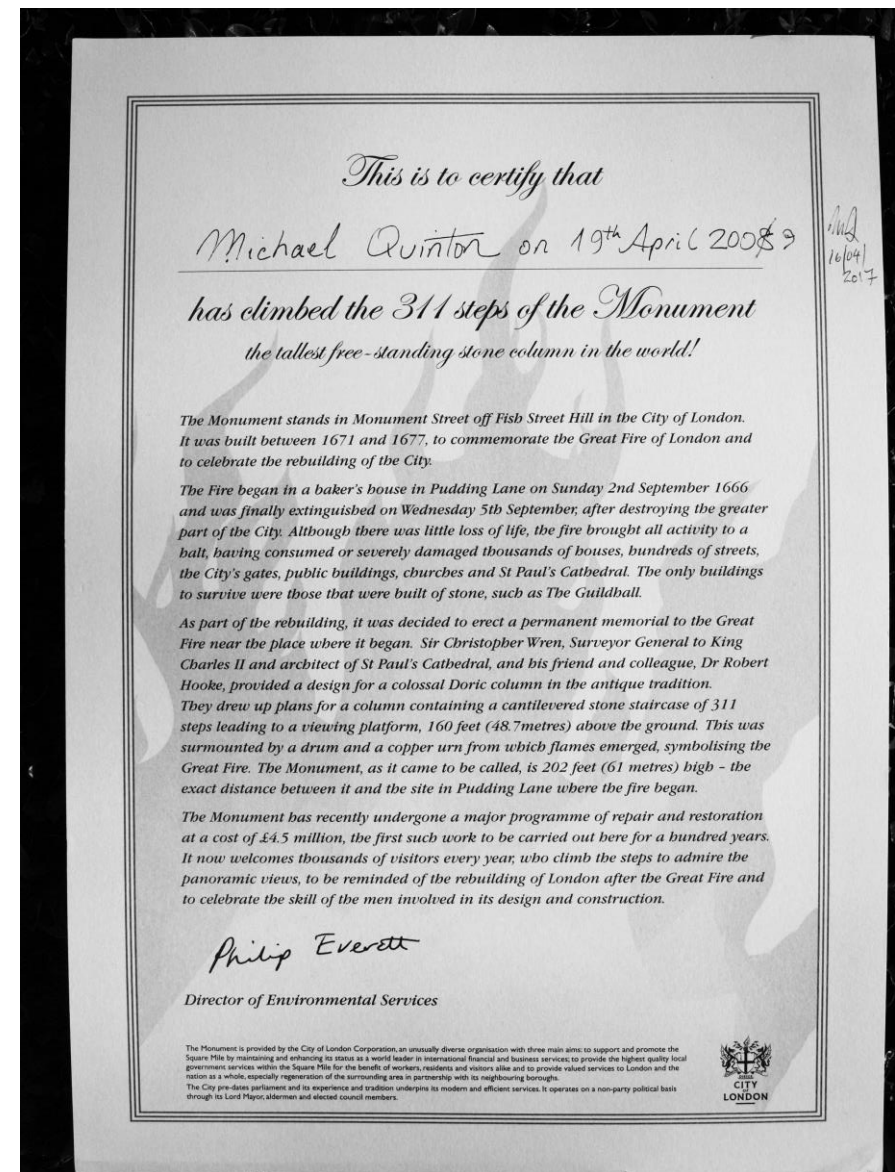 This is to certify that
Michael Quinton on 19th April 2008 9
MQ
16/04/
2017
has climbed the 311 steps of the Monument
the tallest free-standing stone column in the world!
The Monument stands in Monument Street off Fish Street Hill in the City of London.
It was built between 1671 and 1677, to commemorate the Great Fire of London and
to celebrate the rebuilding of the City.
The Fire began in a baker's house in Pudding Lane on Sunday 2nd September 1666
and was finally extinguished on Wednesday 5th September, after destroying the greater
part of the City. Although there was little loss of life, the fire brought all activity to a
halt, having consumed or severely damaged thousands of houses, hundreds of streets,
the City's gates, public buildings, churches and St Paul's Cathedral. The only buildings
to survive were those that were built of stone, such as The Guildhall.
As part of the rebuilding, it was decided to erect a permanent memorial to the Great
Fire near the place where it began. Sir Christopher Wren, Surveyor General to King
Charles II and architect of St Paul's Cathedral, and his friend and colleague, Dr Robert
Hooke, provided a design for a colossal Doric column in the antique tradition.
They drew up plans for a column containing a cantilevered stone staircase of 311
steps leading to a viewing platform, 160 feet (48.7metres) above the ground. This was
surmounted by a drum and a copper urn from which flames emerged, symbolising the
Great Fire. The Monument, as it came to be called, is 202 feet (61 metres) high – the
exact distance between it and the site in Pudding Lane where the fire began.
The Monument has recently undergone a major programme of repair and restoration
at a cost of £4.5 million, the first such work to be carried out here for a hundred years.
It now welcomes thousands of visitors every year, who climb the steps to admire the
panoramic views, to be reminded of the rebuilding of London after the Great Fire and
to celebrate the skill of the men involved in its design and construction.
Philip Everett
Director of Environmental Services
The Monument is provided by the City of London Corporation, an unusually diverse organisation with three main aims: to support and promote the
Square Mile by maintaining and enhancing its status as a world leader in international financial and business services; to provide the highest quality local
government services within the Square Mile for the benefit of workers, residents and visitors alike and to provide valued services to London and the
nation as a whole, especially regeneration of the surrounding area in partnership with its neighbouring boroughs.
The City pre-dates parliament and its experience and tradition underpins its modern and efficient services. It operates on a non-party political basis
through its Lord Mayor, aldermen and elected council members.
CITY
OF
LONDON